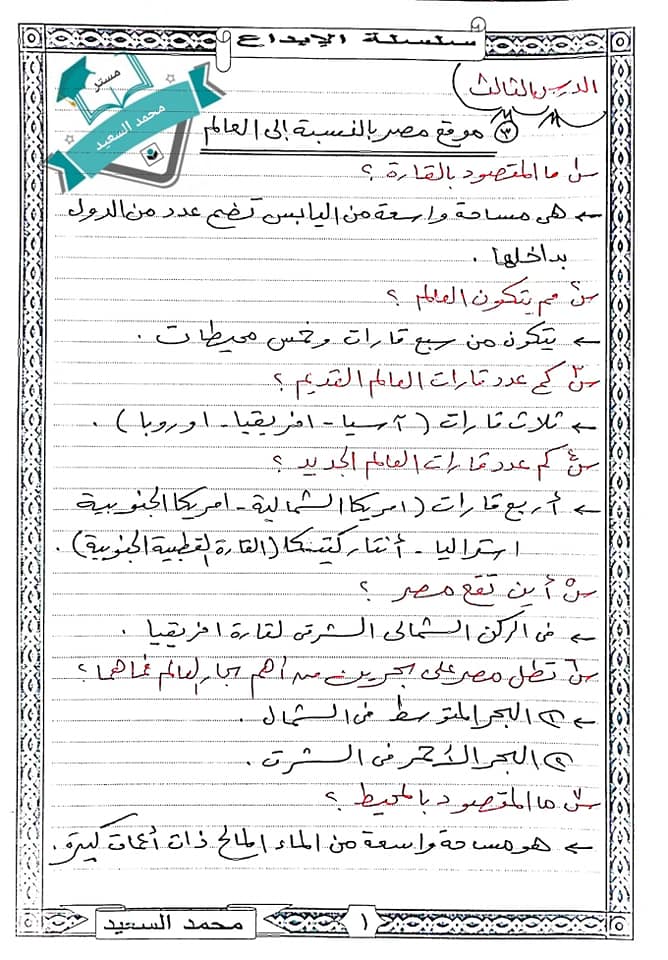 سلسلة الإبداع
مستر
محمد السعيد
الدرس الثالث
٣ موقع مصر بالنسبة إلى العالم
س١ ما المقصود بالقارة ؟
← هى مساحة واسعة من اليابس تضم عدد من الدول
بداخلها .
س٢ مم يتكون العالم ؟
← يتكون من سبع قارات وخمس محيطات .
س٣ كم عدد قارات العالم القديم ؟
← ثلاث قارات ( آسيا - افريقيا - اوروبا ) .
س٤ كم عدد قارات العالم الجديد ؟
← أربع قارات ( امريكا الشمالية - امريكا الجنوبية
استراليا - أنتاركتيكا (القارة القطبية الجنوبية) .
س٥ أين تقع مصر ؟
← فى الركن الشمالى الشرقى لقارة افريقيا .
س٦ تطل مصر على بحرين من أهم بحار العالم فما هما ؟
← ١) البحر المتوسط فى الشمال .
٢) البحر الأحمر فى الشرق .
س٧ ما المقصود بالمحيط ؟
← هو مساحة واسعة من الماء المالح ذات أعماق كبيرة .
١
محمد السعيد